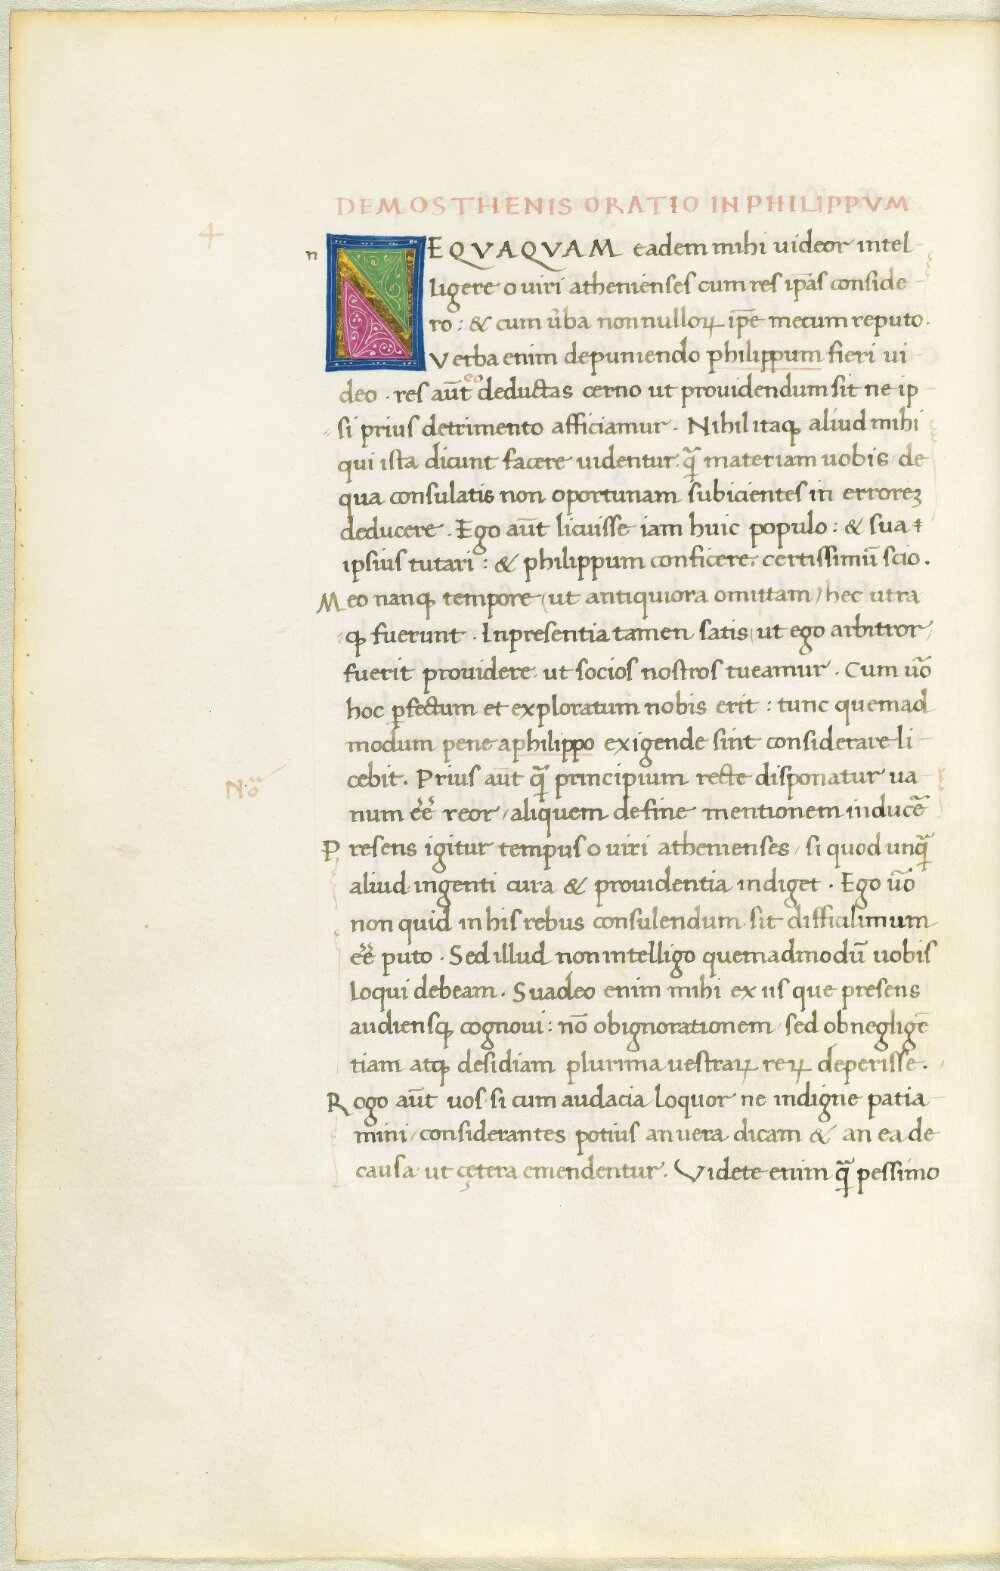 DEMOSTHENIS ORATIO IN PHILIPPVM
4
n
NEQVAQVAM eadem mihi uideor intel-
ligere o uiri athenienses cum res ip̄as conside-
ro : & cum ūba non nulloꝝ ip̄e mecum reputo.
Verba enim de puniendo philippum fieri ui-
eo
deo . res aūt deductas cerno ut prouidendum sit ne ip-
si prius detrimento afficiamur . Nihil itaqꝫ aliud mihi
qui ista dicunt facere uidentur . qꝫ̄ materiam uobis / de
qua consulatis non oportunam subicientes in erroreꝫ
deducere . Ego aūt licuisse iam huic populo : & sua &
ipsius tutari : & philippum conficere : certissimū scio .
Meo nanqꝫ tempore ( ut antiquiora omittam ) hec utra
qꝫ fuerunt . In presentia tamen satis / ut ego arbitror /
fuerit prouidere . ut socios nostros tueamur . Cum ūo
hoc ꝑfectum et exploratum nobis erit : tunc quemad
modum pene a philippo exigende sint considerare li-
cebit . Prius aūt qꝫ̄ principium recte disponatur ua-
No
num eē reor / aliquem de fine mentionem inducē
Presens igitur tempus o uiri athenienses / si quod unqꝫ̄
aliud ingenti cura & prouidentia indiget . Ego ūo
non quid in his rebus consulendum sit difficilimum
eē puto . Sed illud non intelligo quemadmodū uobis
loqui debeam . Suadeo enim mihi ex iis que presens
audiensqꝫ cognoui : nō ob ignorationem / sed ob negligē
tiam atqꝫ desidiam plurima uestraꝝ reꝝ deperisse .
Rogo aūt uos si cum audacia loquor ne indigne patia-
mini / considerantes potius an uera dicam & an ea de
causa ut cętera emendentur . Videte enim qꝫ̄ pessimo